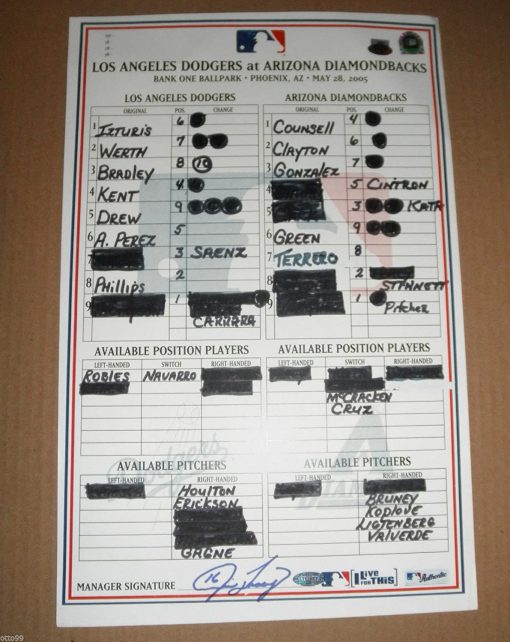 LOS ANGELES DODGERS at ARIZONA DIAMONDBACKS
BANK ONE BALLPARK • PHOENIX, AZ • MAY 28, 2005
LOS ANGELES DODGERS
ORIGINAL POS. CHANGE
1 Izturis 6
2 Werth 7
3 Bradley 8 10
4 Kent 4
5 Drew 9
6 A. Perez 5
7 3 Saenz
8 Phillips 2
9 1
Carrara
ARIZONA DIAMONDBACKS
ORIGINAL POS. CHANGE
1 Counsell 4
2 Clayton 6
3 Gonzalez 7
4 5 Cintron
5 3 Kata
6 Green 9
7 Terrero 8
8 2
Stinnett
9 1 Pitcher
AVAILABLE POSITION PLAYERS
LEFT-HANDED SWITCH RIGHT-HANDED
Robles Navarro
AVAILABLE POSITION PLAYERS
LEFT-HANDED SWITCH RIGHT-HANDED
McCracken
Cruz
AVAILABLE PITCHERS
LEFT-HANDED RIGHT-HANDED
Houlton
Erickson
Gagne
AVAILABLE PITCHERS
LEFT-HANDED RIGHT-HANDED
Bruney
Koplove
Ligtenberg
Valverde
MANAGER SIGNATURE
16
I LIVE FOR THIS!
Authentic
Dodgers
otto99